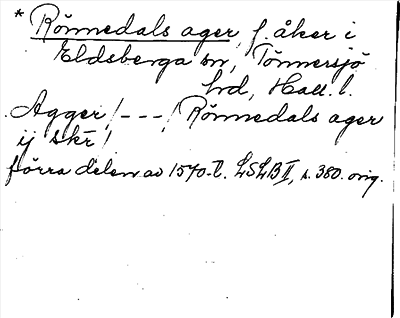 * Rönnedals ager, f. åker i
Eldsberga sn, Tönnersjö
hd, Hall. l.
Agger /---/ Rönnedals ager
ij skr̄ /
förra delen av 1570-t. LSLB II, s. 380. orig.